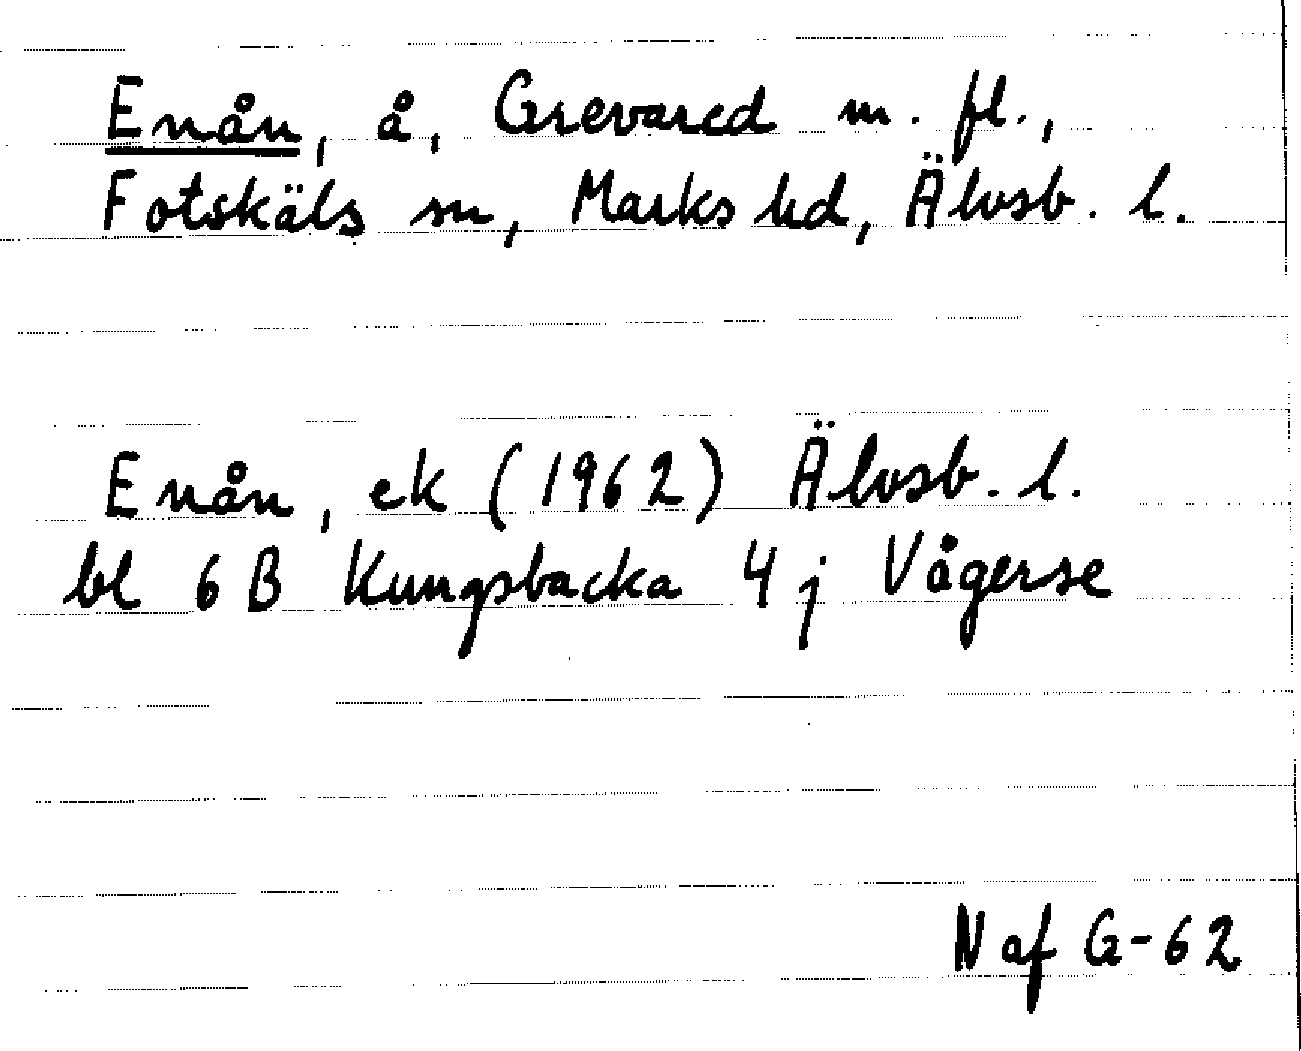 Enån, å, Grevared m. fl.,
Fotskäls sn, Marks hd, Älvsb. l.
Enån, ek (1962) Älvsb. l.
bl 6 B Kungsbacka 4 j Vågerse
N af G-62